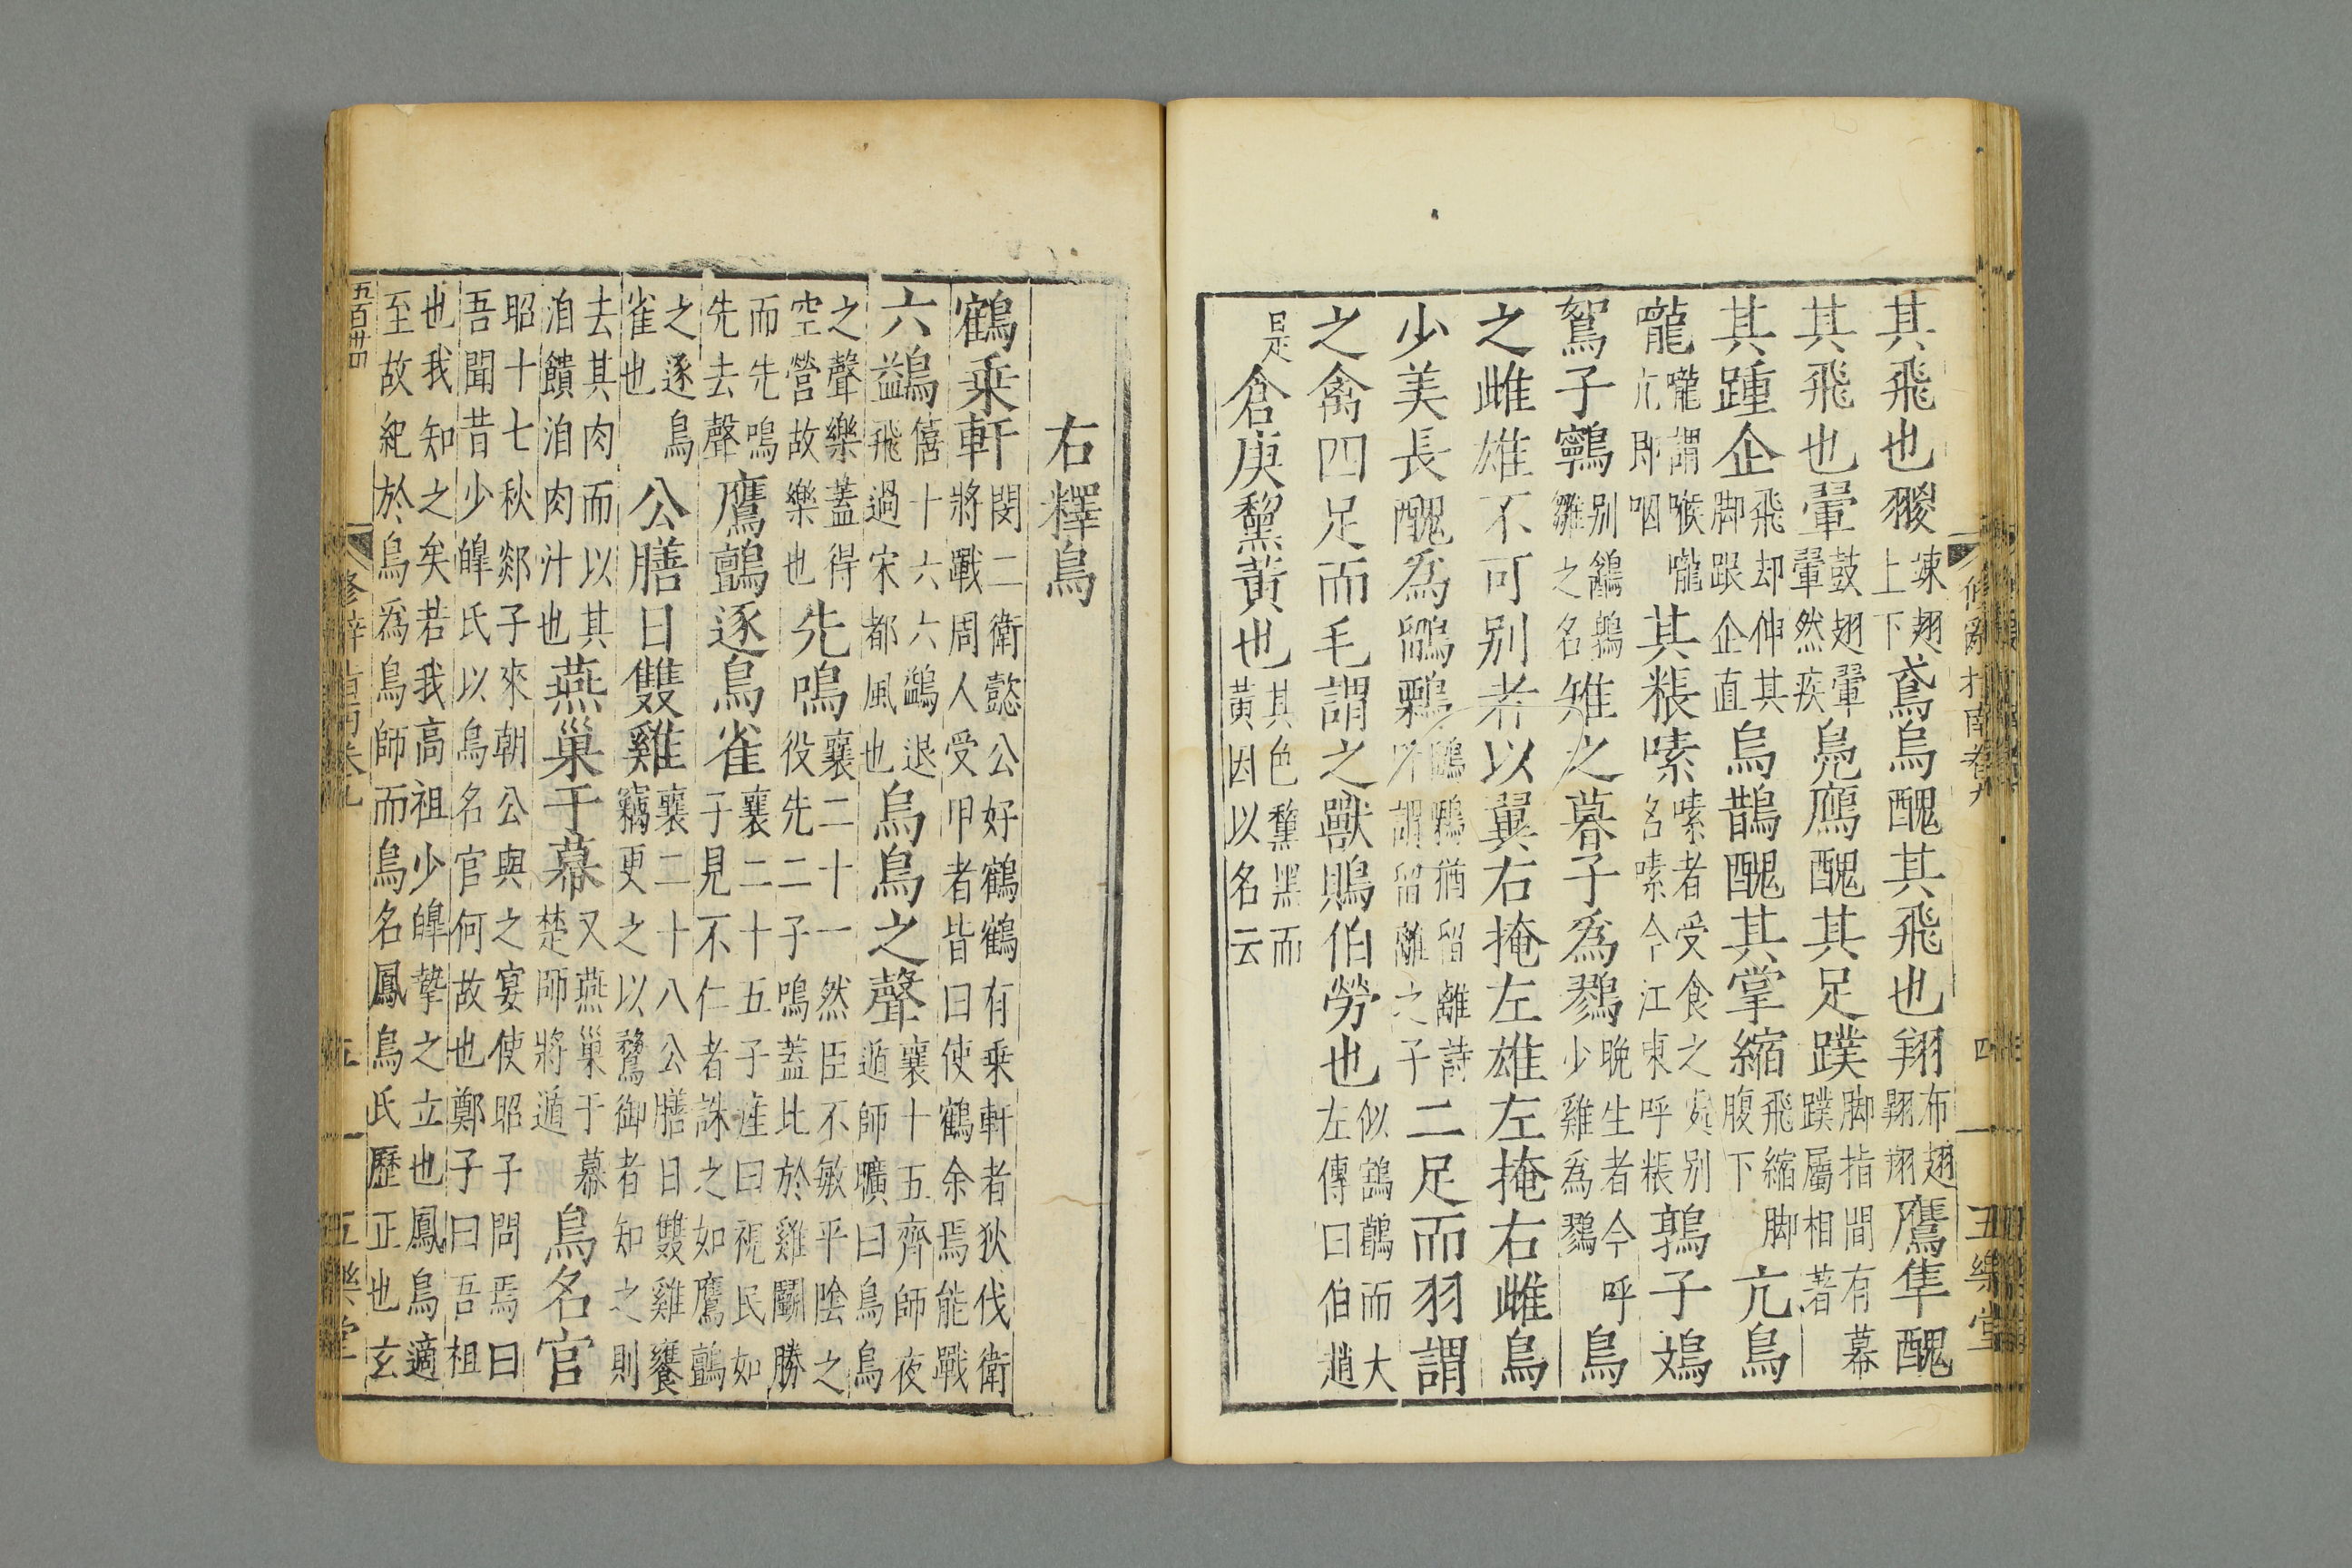 其飛也翪竦翅上下鳶烏醜其飛也翔布翅翱翔鷹隼醜
其飛也翬鼓翅翬翬然疾鳧鴈醜其足蹼脚指間有幕蹼屬相著
其踵企飛却伸其脚跟企直烏鵲醜其掌縮飛縮脚腹下亢鳥
嚨嚨謂喉嚨亢即咽其粻嗉嗉者受食之處别名嗉今江東呼粻鶉子鳼
鴽子鸋别鷂鶉雛之名雉之暮子爲鷚晚生者今呼少雞爲鷚鳥
之雌雄不可别者以翼右掩左雄左掩右雌鳥
少美長醜爲鶹鷅鶹鷅猶留離詩所謂留離之子二足而羽謂
之禽四足而毛謂之獸鵙伯勞也似鶷鶡而大左傳曰伯趙
是倉庚黧黄也其色黧黑而黄因以名云
修辭指南卷九 四 五樂堂
右釋鳥
鶴乘軒閔二衛懿公好鶴鶴有乘軒者狄伐衛將戰周人受甲者皆曰使鶴余焉能戰
六鷁僖十六六鷁退飛過宋都風也鳥烏之聲襄十五齊師夜遁師曠曰鳥烏
之聲樂蓋得空營故樂也先鳴襄二十一然臣不敏平陰之役先二子鳴蓋比於雞鬭勝
而先鳴先去聲鷹鸇逐鳥雀襄二十五子産曰視民如子見不仁者誅之如鷹鸇
之逐鳥雀也公膳日雙雞襄二十八公膳日雙雞饔竊更之以鶩御者知之則
去其肉而以其洎饋洎肉汁也燕巢于幕又燕巢于幕楚師將遁鳥名官
昭十七秋郯子來朝公與之宴使昭子問焉曰吾聞昔少皥氏以鳥名官何故也鄭子曰吾祖
也我知之矣若我高祖少皥摯之立也鳳鳥適至故紀於鳥爲鳥師而鳥名鳳鳥氏歷正也玄
五百卅四
修辭指南卷九 五 五樂堂